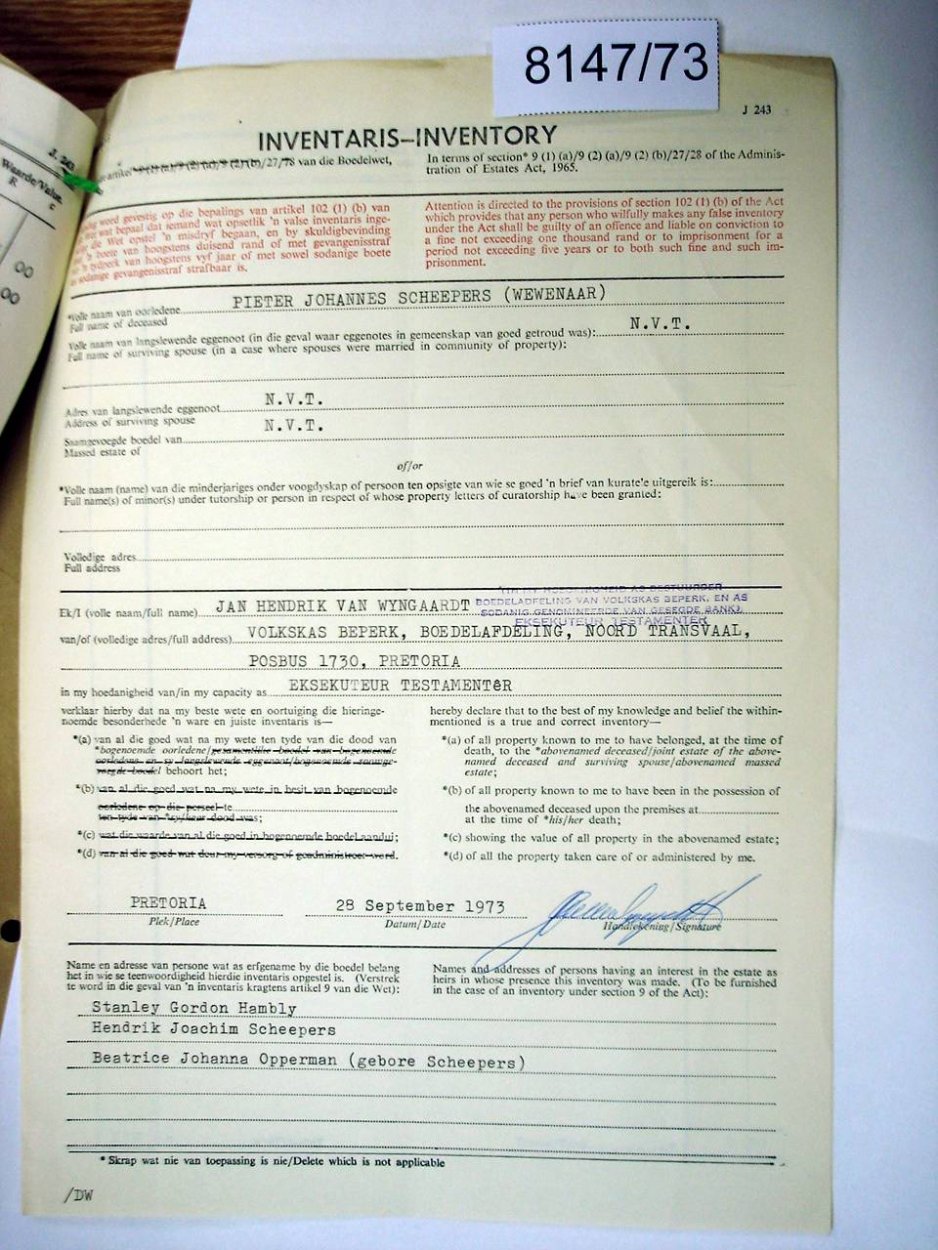 8147/73
J 243
INVENTARIS–INVENTORY
artikel* 9 (1) (a)/9 (2) (a)/9 (2) (b)/27/78 van die Boedelwet,
In terms of section* 9 (1) (a)/9 (2) (a)/9 (2) (b)/27/28 of the Adminis-
tration of Estates Act, 1965.
J. 243
Waarde/Value.
R c
00
00
word gevestig op die bepalings van artikel 102 (1) (b) van
wat bepaal dat iemand wat opsetlik 'n valse inventaris inge-
die Wet opstel 'n misdryf begaan, en by skuldigbevinding
'n boete van hoogstens duisend rand of met gevangenisstraf
'n tydperk van hoogstens vyf jaar of met sowel sodanige boete
sodanige gevangenisstraf strafbaar is.
Attention is directed to the provisions of section 102 (1) (b) of the Act
which provides that any person who wilfully makes any false inventory
under the Act shall be guilty of an offence and liable on conviction to
a fine not exceeding one thousand rand or to imprisonment for a
period not exceeding five years or to both such fine and such im-
prisonment.
*Volle naam van oorledene PIETER JOHANNES SCHEEPERS (WEWENAAR)
Full name of deceased
Volle naam van langslewende eggenoot (in die geval waar eggenotes in gemeenskap van goed getroud was): N.V.T.
Full name of surviving spouse (in a case where spouses were married in community of property):
Adres van langslewende eggenoot N.V.T.
Address of surviving spouse N.V.T.
Saamgevoegde boedel van
Massed estate of
of/or
*Volle naam (name) van die minderjariges onder voogdyskap of persoon ten opsigte van wie se goed 'n brief van kuratele uitgereik is:
Full name(s) of minor(s) under tutorship or person in respect of whose property letters of curatorship have been granted:
Volledige adres
Full address
Ek/I (volle naam/full name) JAN HENDRIK VAN WYNGAARDT
(IN MY HOEDANIGHEID AS BESTUURDER
BOEDELAFDELING VAN VOLKSKAS BEPERK, EN AS
SODANIG GENOMINEERDE VAN GESEGDE BANK).
EKSEKUTEUR TESTAMENTER
van/of (volledige adres/full address) VOLKSKAS BEPERK, BOEDELAFDELING, NOORD TRANSVAAL,
POSBUS 1730, PRETORIA
in my hoedanigheid van/in my capacity as EKSEKUTEUR TESTAMENTêR
verklaar hierby dat na my beste wete en oortuiging die hieringe-
noemde besonderhede 'n ware en juiste inventaris is—
hereby declare that to the best of my knowledge and belief the within-
mentioned is a true and correct inventory—
*(a) van al die goed wat na my wete ten tyde van die dood van
*bogenoemde oorledene/gesamentlike boedel van bogenoemde
oorledene en sy langslewende eggenoot/bogenoemde saamge-
voegde boedel behoort het;
*(a) of all property known to me to have belonged, at the time of
death, to the *abovenamed deceased/joint estate of the above-
named deceased and surviving spouse/abovenamed massed
estate;
*(b) van al die goed wat na my wete in besit van bogenoemde
oorledene op die perseel te
ten tyde van *sy/haar dood was;
*(b) of all property known to me to have been in the possession of
the abovenamed deceased upon the premises at
at the time of *his/her death;
*(c) wat die waarde van al die goed in bogenoemde boedel aandui;
*(c) showing the value of all property in the abovenamed estate;
*(d) van al die goed wat deur my versorg of geadministreer word.
*(d) of all the property taken care of or administered by me.
PRETORIA 28 September 1973
Plek/Place Datum/Date Handtekening/Signature
Name en adresse van persone wat as erfgename by die boedel belang
het in wie se teenwoordigheid hierdie inventaris opgestel is. (Verstrek
te word in die geval van 'n inventaris kragtens artikel 9 van die Wet):
Names and addresses of persons having an interest in the estate as
heirs in whose presence this inventory was made. (To be furnished
in the case of an inventory under section 9 of the Act):
Stanley Gordon Hambly
Hendrik Joachim Scheepers
Beatrice Johanna Opperman (gebore Scheepers)
* Skrap wat nie van toepassing is nie/Delete which is not applicable
/DW